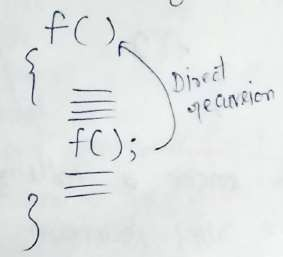 f()
{
Direct
recursion
f();
}